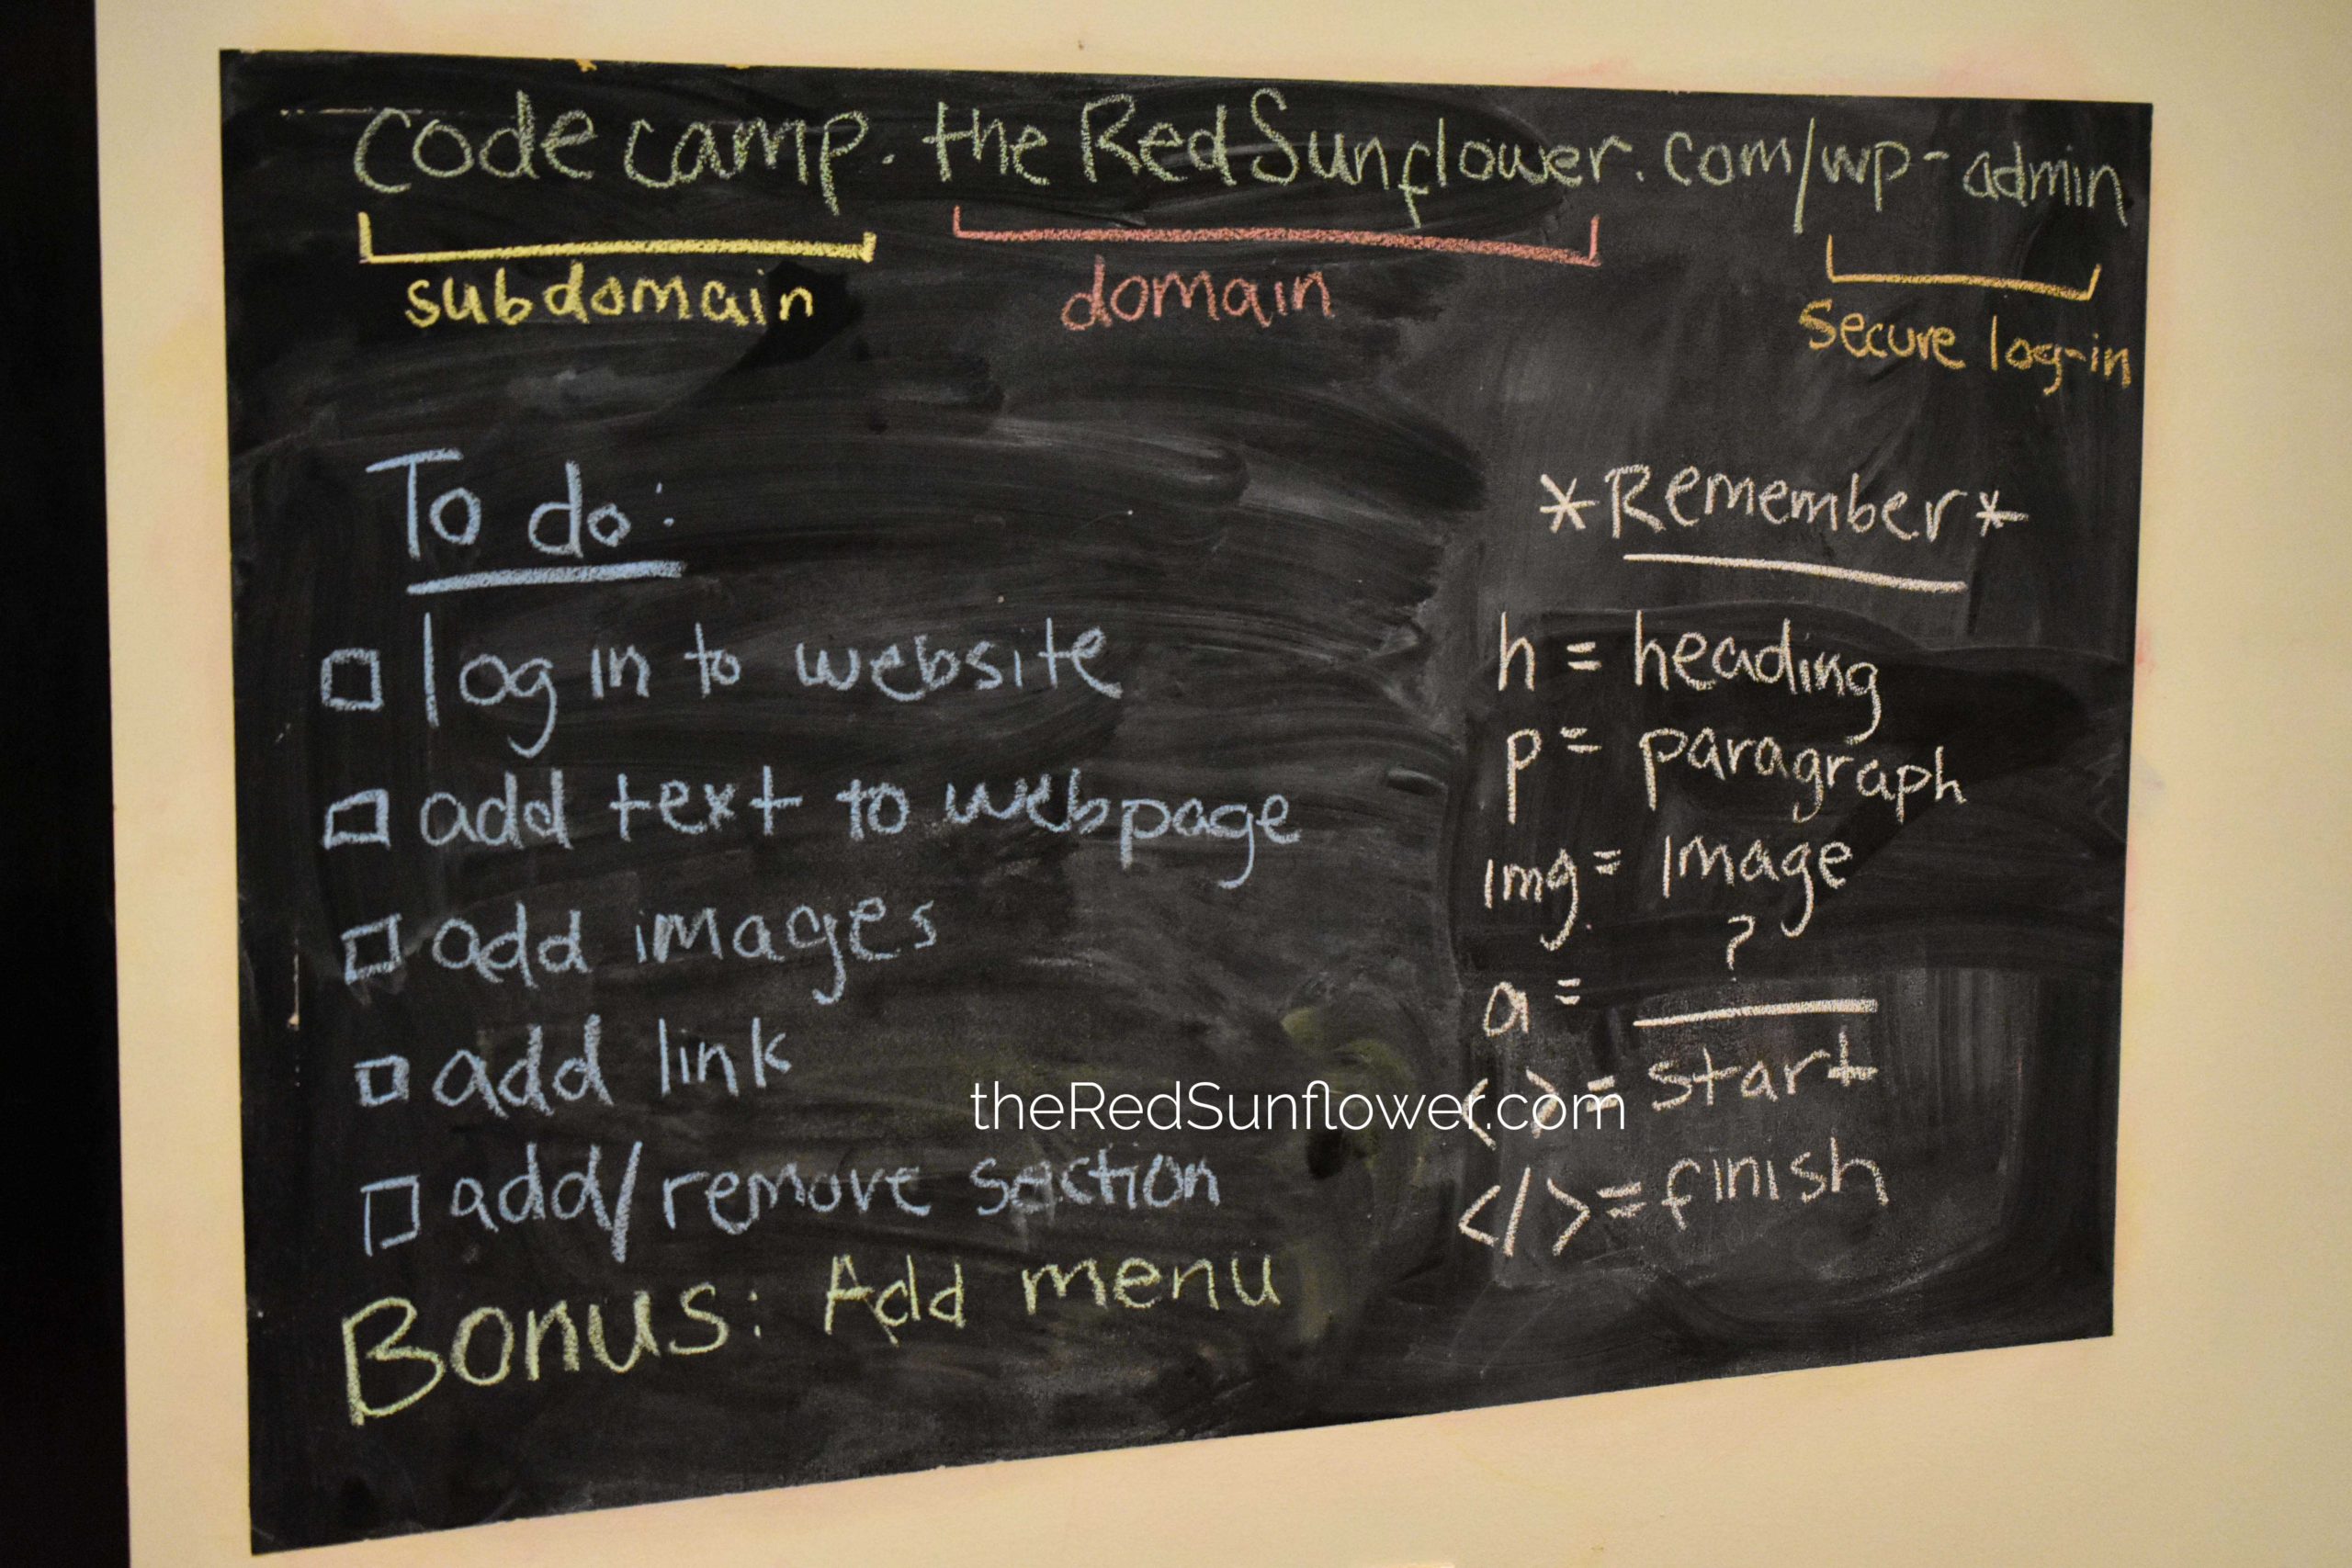 codecamp.theRedSunflower.com/wp-admin
subdomain
domain
Secure log-in
To do:
log in to website
add text to webpage
add images
add link
add/remove section
Bonus: Add menu
*Remember*
h = heading
p = paragraph
img = image
?
a = ____
< > = start
</> = finish
theRedSunflower.com